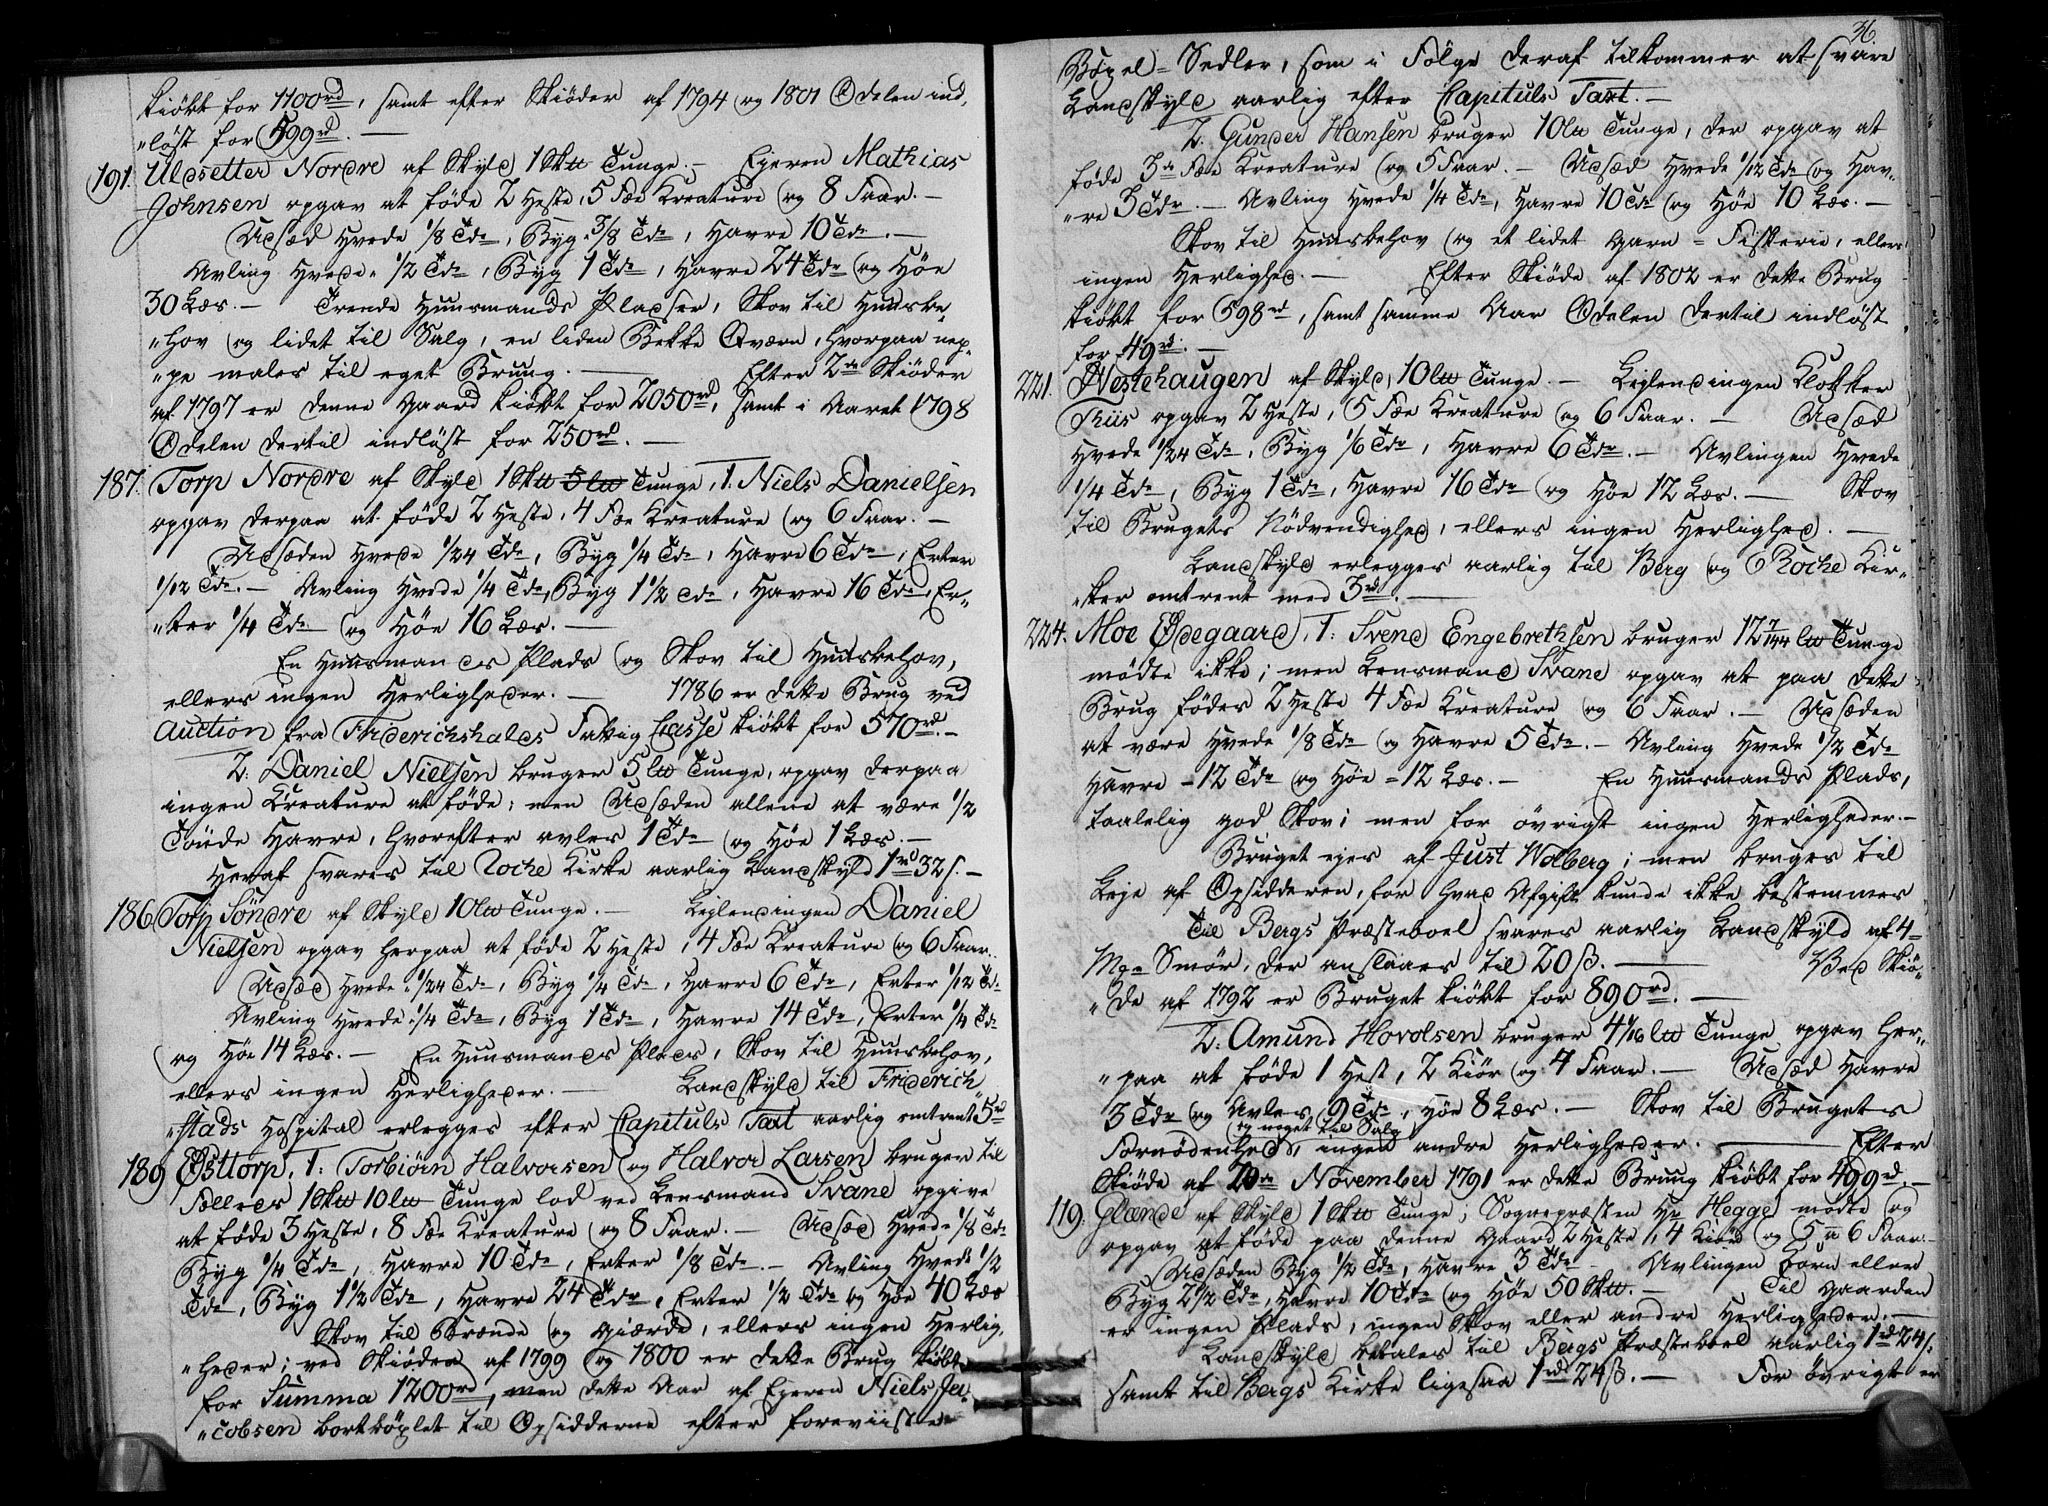 kiöbt for 1100rd, samt efter Skiöder af 1794 og 1801 Odelen ind„
„löst for 599rd. —
191. Ulvsetter Nordre af Skyld 1 Skll Tunge. — Ejeren Mathias
Johnsen opgav at föde 2 Heste, 5 Fæe Kreature og 8 Faar. —
Udsæd Hvede 1/8 Tde, Byg 3/8 Tde, Havre 10 Tdr. —
Avling Hvede 1/2 Tde, Byg 1 Tde, Havre 24 Tdr og Höe
30 Læs. — Trende Huusmands Pladser, Skov til Huusbe„
„hov og lidet til Salg, en liden Bekke Qværn, hvorpaa nep„
„pe males til eget Brug. — Efter 2de Skiöder
af 1797 er denne Gaard kiöbt for 2050rd, samt i Aaret 1798
Odelen dertil indlöst for 250rd. —
187. Torp Nordre af Skyld 1 Skll 5 lll Tunge, 1. Niels Danielsen
opgav derpaa at föde 2 Heste, 4 Fæe Kreature og 6 Faar. —
Udsæden Hvede 1/24 Tde, Byg 1/4 Tde, Havre 6 Tdr, Erter
1/12 Tde. — Avling Hvede 1/4 Tde, Byg 1 1/2 Tde, Havre 16 Tdr, Er„
„ter 1/4 Tde og Höe 16 Læs. —
En Huusmandes Plads og Skov til Huusbehov,
ellers ingen Herligheder. — 1786 er dette Brug ved
Auction fra Friderichshalds Fattig Casse kiöbt for 570rd. —
2. Daniel Nielsen bruger 5 lll Tunge, opgav derpaa
ingen Kreature at föde; men Udsæden allene at være 1/2
Tönde Havre, hvorefter avles 1 Tde og Höe 1 Læs. —
Heraf svares til Rocke Kirke aarlig Landskyld 1rd 32 s. —
186 Torp Söndre af Skyld 10 lll Tunge. — Lejlendingen Daniel
Nielsen opgav herpaa at föde 2 Heste, 4 Fæe Kreature og 6 Faar.
Udsæd Hvede 1/24 Tde, Byg 1/4 Tde, Havre 6 Tdr, Erter 1/12 Td.
Avling Hvede 1/4 Tde, Byg 1 Tde, Havre 14 Tdr, Erter 1/4 Tde
og Höe 14 Læs. — En Huusmandes Plads, Skov til Huusbehov,
ellers ingen Herligheder. — Landskyld til Friderich„
„stads Hospital erlegges efter Capituls Taxt aarlig omtrent 5rd
189 Östtorp, 1: Torbiörn Halvorsen og Halvor Larsen bruger til
Fælleds 1 Skll 10 lll Tunge lod ved Lensmand Svane opgive
at föde 3 Heste, 8 Fæe Kreature og 8 Faar. — Udsæd Hvede 1/8 Tde
Byg 1/4 Tde, Havre 10 Tdr, Erter 1/8 Tde. — Avling Hvede 1/2
Tde, Byg 1 1/2 Tde, Havre 24 Tdr, Erter 1/2 Tde og Höe 40 Læs
Skov til Brænde og Giærde, ellers ingen Herlig„
„heder; ved Skiöder af 1799 og 1800 er dette Brug kiöbt
for Summa 1200rd, men dette Aar af Ejeren Niels Ja„
„cobsen bortböxlet til Opsidderne efter foreviiste
36.
Böxel-Sedler, som i Fölge deraf tilkommer at svare
Landskyld aarlig efter Capituls Taxt. —
2. Gunder Hansen bruger 10 lll Tunge, der opgav at
föde 3de Fæe Kreature og 5 Faar. — Udsæd Hvede 1/12 Tde og Hav„
„re 3 Tdr. — Avling Hvede 1/4 Tde, Havre 10 Tdr og Höe 10 Læs. —
Skov til Huusbehov og et lidet Garn-Fiskerie, ellers
ingen Herlighed. — Efter Skiöde af 1802 er dette Brug
kiöbt for 598rd, samt samme Aar Odelen dertil indlöst
for 49rd. —
221. Nestehaugen af Skyld 10 lll Tunge. — Lejlendingen Klokker
Thiis opgav 2 Heste, 5 Fæe Kreature og 6 Faar. — Udsæd
Hvede 1/24 Tde, Byg 1/6 Tde, Havre 6 Tdr. — Avlingen Hvede
1/4 Tde, Byg 1 Tde, Havre 16 Tdr og Höe 12 Læs. — Skov
til Brugets Nödvendighed, ellers ingen Herlighed. —
Landskyld erlegges aarlig til Berg og Rocke Kir„
„ker omtrent med 3rd. —
224. Moe Ödegaard, 1: Svend Engebrethsen bruger 12 7/144 lll Tunge
mödte ikke; men Lensmand Svane opgav at paa dette
Brug födes 2 Heste 4 Fæe Kreature og 6 Faar. — Udsæden
at være Hvede 1/8 Tde og Havre 5 Tdr. — Avling Hvede 1/2 Tde
Havre - 12 Tdr og Höe - 12 Læs. — En Huusmands Plads,
taalelig god Skov; men for övrigt ingen Herligheder. —
Bruget ejes af Just Wolberg; men bruges til
Leje af Opsidderen, for hvad Afgift kunde ikke bestemmes
Til Bergs Præsteboel svares aarlig Landskyld af 4
Mrk Smör, der anslaaes til 20 ß. — Ved Skiö„
„de af 1792 er Bruget kiöbt for 890rd. —
2. Amund Hovolsen bruger 4 1/16 lll Tunge opgav her„
„paa at föde 1 Hest, 2 Kiör og 4 Faar. — Udsæd Havre
3 Tdr og Avles 9 Tdr, Höe 8 Læs. — Skov til Brugets
og noget til Salg
Fornödenhed, ingen andre Herligheder. — Efter
Skiöde af November 1791 er dette Brug kiöbt for 499rd. —
119. Glænde af Skyld 1 Skll Tunge; Sognepræsten Hr Hegge mödte og
opgav at föde paa denne Gaard 2 Heste, 4 Kiör og 5 a 6 Faar. —
Udsæden Byg 1/2 Tde, Havre 3 Tdr — Avlingen Korn eller
Byg 2 1/2 Tde, Havre 10 Tdr og Höe 50 Skll. — Til Gaarden
er ingen Plads, ingen Skov eller andre Herligheder. —
Landskyld betales til Bergs Præsteboel aarlig 1rd 24 s.
samt til Bergs Kirke ligesaa 1rd 24 ß. — For övrigt er